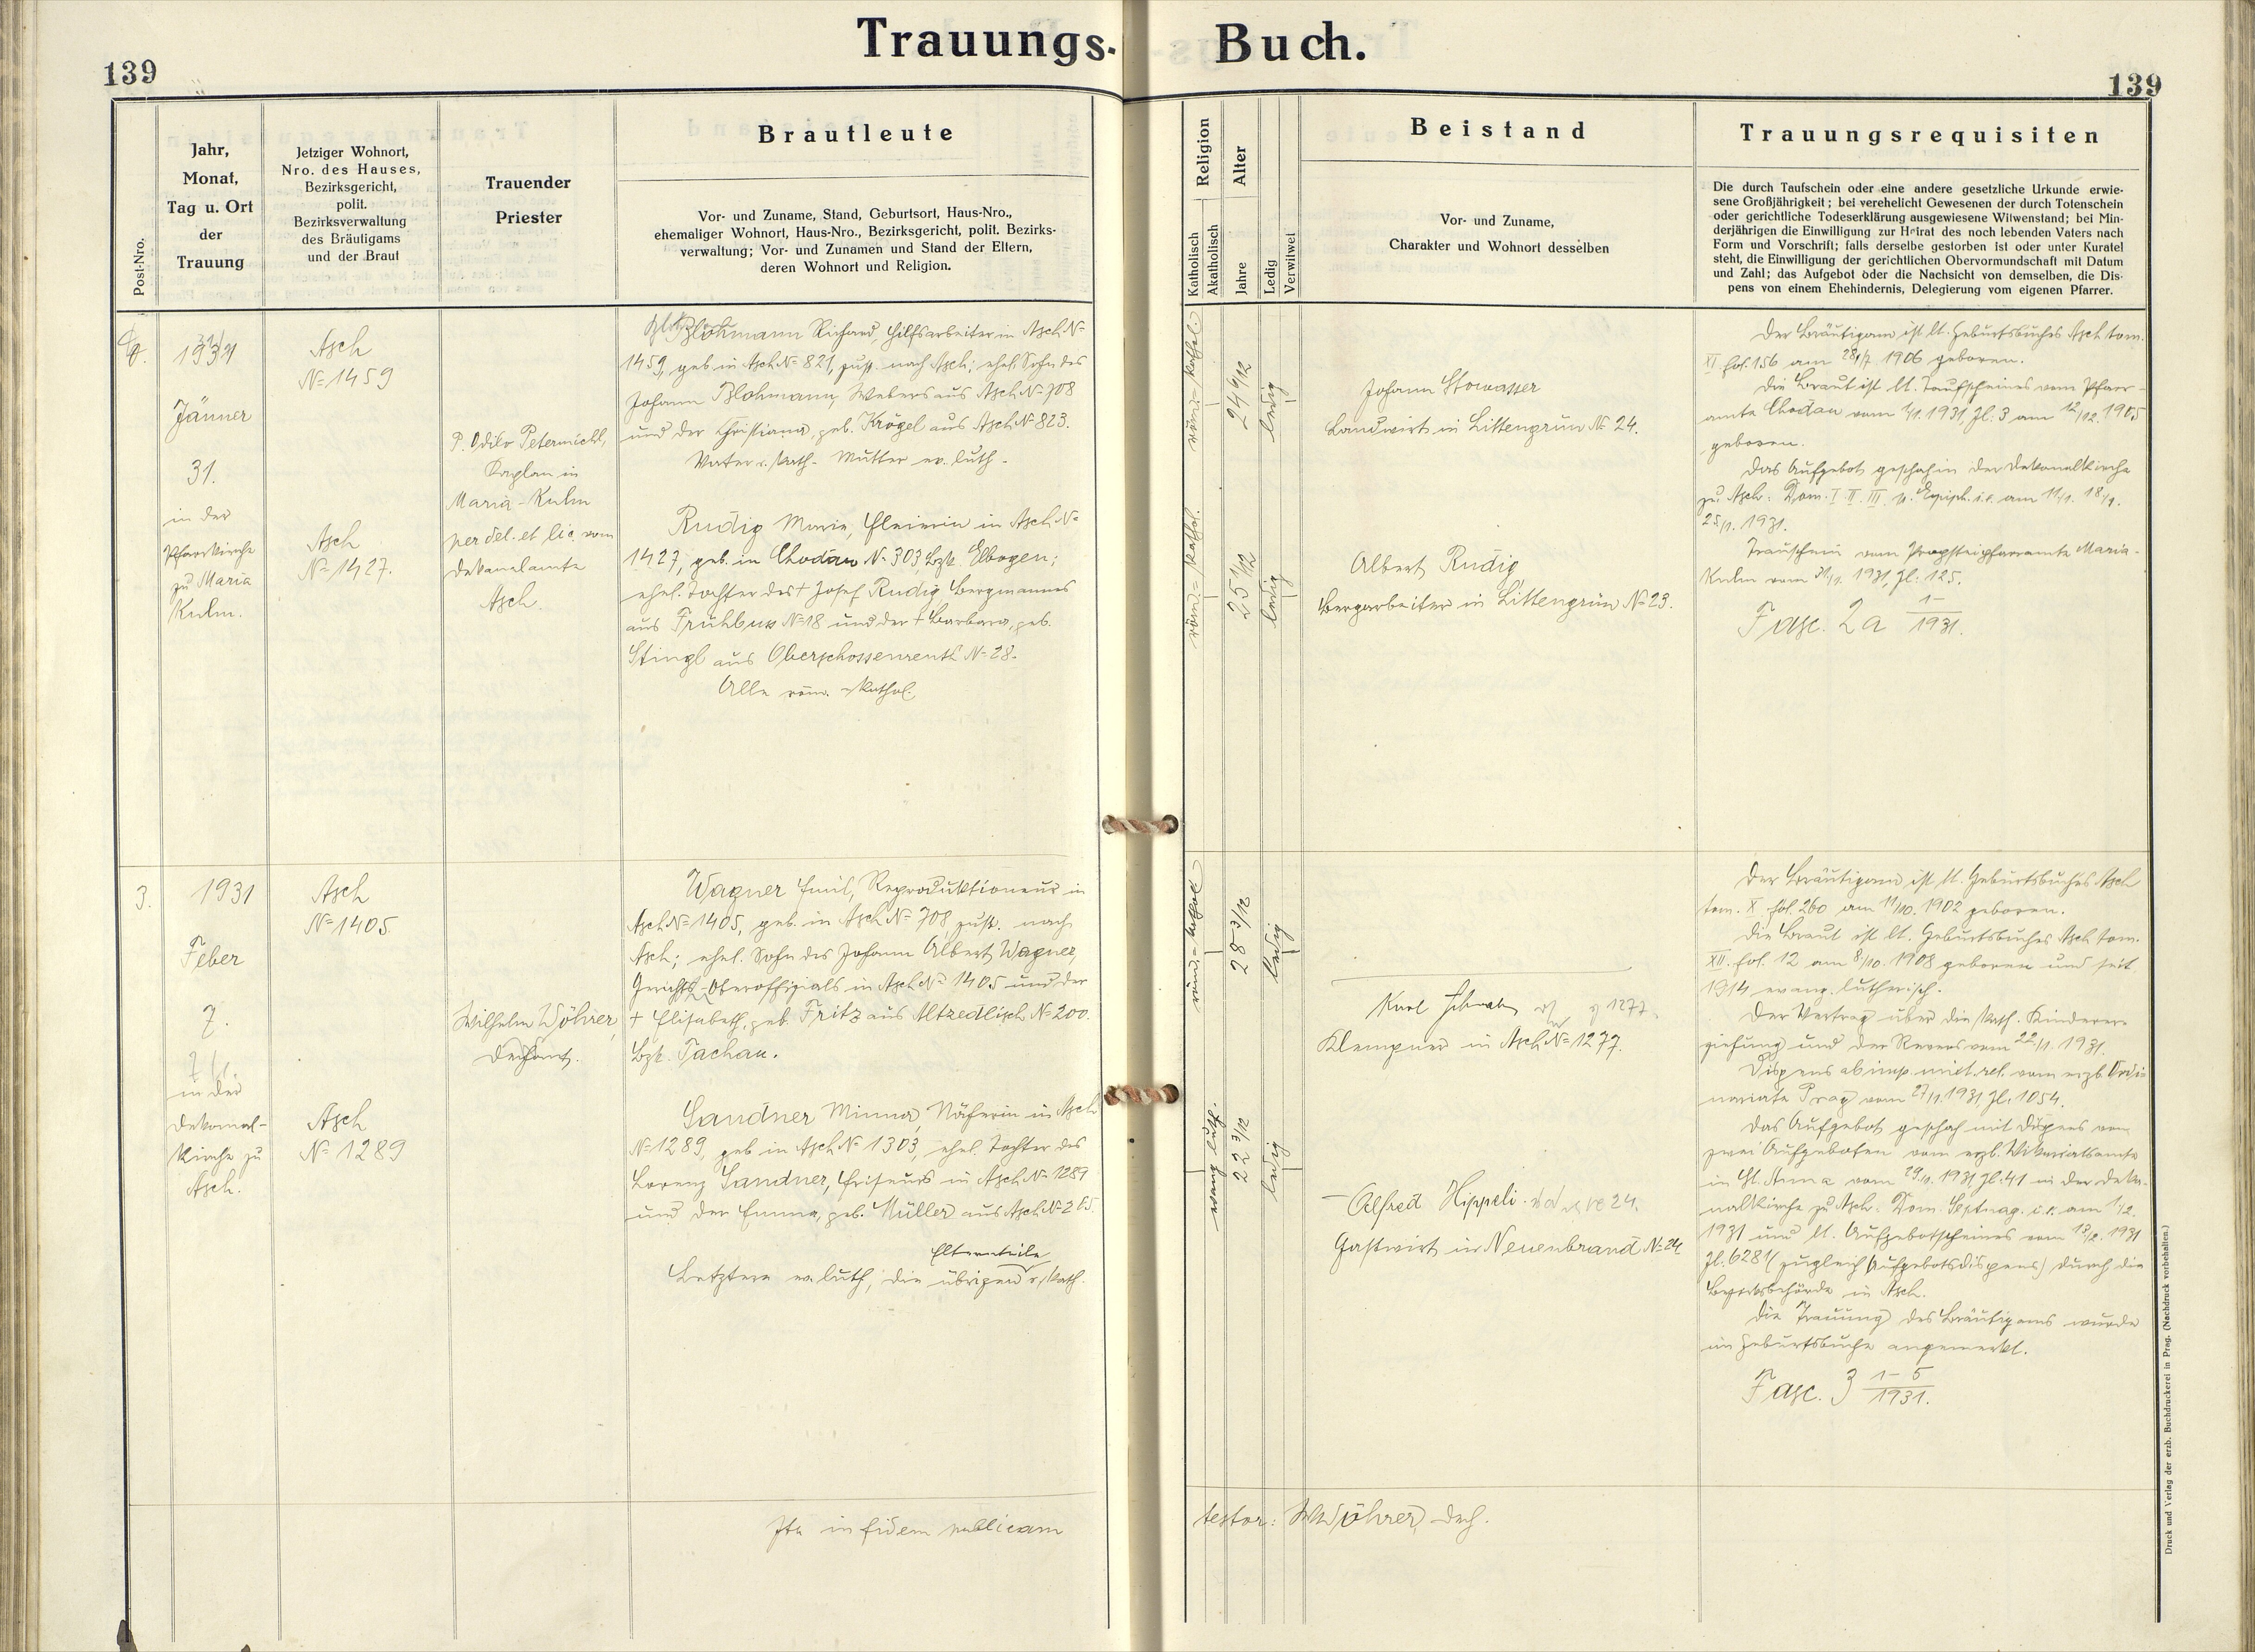 Trauungs-Buch.
139
139
Post-Nro.
Jahr,
Monat,
Tag u. Ort
der
Trauung
Jetziger Wohnort,
Nro. des Hauses,
Bezirksgericht,
polit.
Bezirksverwaltung
des Bräutigams
und der Braut
Trauender
Priester
Brautleute
Vor- und Zuname, Stand, Geburtsort, Haus-Nro.,
ehemaliger Wohnort, Haus-Nro., Bezirksgericht, polit. Bezirks-
verwaltung; Vor- und Zunamen und Stand der Eltern,
deren Wohnort und Religion.
Religion
Katholisch
Akatholisch
Alter
Jahre
Ledig
Verwitwet
Beistand
Vor- und Zuname,
Charakter und Wohnort desselben
Trauungsrequisiten
Die durch Taufschein oder eine andere gesetzliche Urkunde erwie-
sene Großjährigkeit; bei verehelicht Gewesenen der durch Totenschein
oder gerichtliche Todeserklärung ausgewiesene Witwenstand; bei Min-
derjährigen die Einwilligung zur Heirat des noch lebenden Vaters nach
Form und Vorschrift; falls derselbe gestorben ist oder unter Kuratel
steht, die Einwilligung der gerichtlichen Obervormundschaft mit Datum
und Zahl; das Aufgebot oder die Nachsicht von demselben, die Dis-
pens von einem Ehehindernis, Delegierung vom eigenen Pfarrer.
1931
Jänner
31.
in der
Pfarrkirche
zu Maria
Kulm.
Asch
№ 1459
Asch
№ 1427.
P. Odilo Petermichl,
Kaplan in
Maria-Kulm
per del. et lic. vom
Dekanalamte
Asch.
Blohmann Richard, Hilfsarbeiter in Asch №
1459, geb. in Asch № 821, zust. nach Asch; ehel. Sohn des
Johann Blohmann, Webers aus Asch № 708
und der Christiana, geb. Krögel aus Asch № 823.
Vater r. kath. Mutter ev. luth.
Rudig Marie, Fleierin in Asch №
1427, geb. in Chodau № 303, Bzk. Elbogen;
ehel. Tochter des † Josef Rudig Bergmannes
aus Frühbuss № 18 und der † Barbara, geb.
Stingl aus Oberschossenreuth № 28.
Alle röm.-kathol.
röm.-kathol.
24 6/12
ledig
röm.-kathol.
25 1/12
ledig
Johann Stowasser
Landwirt in Littengrün № 24.
Albert Rudig
Bergarbeiter in Littengrün № 23.
Der Bräutigam ist lt. Geburtsbuches Asch tom.
XI. fol. 156 am 28/7 1906 geboren.
Die Braut ist lt. Taufscheines vom Pfarr-
amte Chodau vom 7/1. 1931, Zl. 3 am 12/12. 1905
geboren.
Das Aufgebot geschah in der Dekanalkirche
zu Asch: Dom. I. II. III. p. Epiph. i.e. am 11/1. 18/1.
25/1. 1931.
Trauschein vom Propsteipfarramte Maria-
Kulm vom 31/1. 1931, Zl. 125.
Fasc. 2a 1-/1931.
3.
1931
Feber
7.
7/2.
in der
Dekanal-
kirche zu
Asch.
Asch
№ 1405
Asch
№ 1289
Wilhelm Wöhrer,
Dechant.
Wagner Emil, Reproduktioneur in
Asch № 1405, geb. in Asch № 708, zust. nach
Asch; ehel. Sohn des Johann Albert Wagner,
Gerichts-Oberoffizials in Asch № 1405 und der
† Elisabeth, geb. Fritz aus Altzedlisch № 200.
Bzk. Tachau.
Sandner Minna, Näherin in Asch
№ 1289, geb. in Asch № 1303, ehel. Tochter des
Lorenz Sandner, Friseurs in Asch № 1289
und der Emma, geb. Müller aus Asch № 265.
Elternteile
Letztere ev. luth., die übrigen r. kath.
röm.-kathol.
28 3/12
ledig
evang. luth.
22 3/12
ledig
Karl
Klempner in Asch № 1277.
Alfred Hippeli
Gastwirt in Neuenbrand № 24
Der Bräutigam ist lt. Geburtsbuches Asch
tom. X. fol. 260 am 11/10. 1902 geboren.
Die Braut ist lt. Geburtsbuches Asch tom.
XII. fol. 12 am 8/10. 1908 geboren und seit
1914 evang. lutherisch.
Der Vertrag über die kath. Kinderer-
ziehung und der Revers vom 22/1. 1931.
Dispens ab imp. mixt. rel. vom erzb. Ordi-
nariate Prag vom 27/1. 1931, Zl. 1054.
Das Aufgebot geschah mit Dispens von
zwei Aufgeboten vom erzb. Vikariatsamte
in St. Anna vom 29/1. 1931, Zl. 41 in der Deka-
nalkirche zu Asch: Dom. Septuag. i.e. am 1/2.
1931 und lt. Aufgebotscheines vom 1931
Zl. 6281 (zugleich Aufgebotsdispens) durch die
Bezirksbehörde in Asch.
Die Trauung des Bräutigams wurde
im Geburtsbuche angemerkt.
Fasc. 3 1-5/1931.
Ita in fidem publicam
testor: W. Wöhrer, Dech.
Druck und Verlag der erzb. Buchdruckerei in Prag. (Nachdruck vorbehalten.)